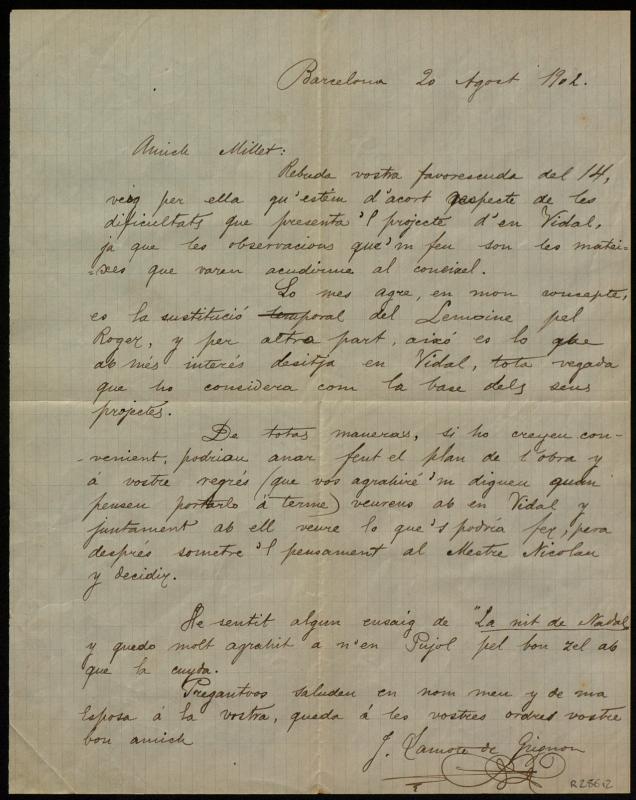 Barcelona 20 Agost 1902.
Amich Millet:
Rebuda vostra favorescuda del 14,
veig per ella qu'estém d'acort respecte de les
dificultats que presenta'l projecte d'en Vidal,
ja que les observacions que'm feu son les matei-
=xes que varen acudirme al coneixel.
Lo mes agre, en mon concepte,
es la sustitució temporal del Lemoine pel
Roger, y per altra part, aixó es lo que
ab més interés desitja en Vidal, tota vegada
que ho considera com la base dels seus
projectes.
De totas maneras, si ho creyeu con-
-venient, podriau anar fent el plan de l'obra y
á vostre regrés (que vos agrahiré'm digueu quan
penseu portarlo á terme) veurens ab en Vidal y
juntament ab ell veure lo que's podría fer, pera
després sometre'l pensament al Mestre Nicolau
y decidir.
He sentit algun ensaig de "La nit de Nadal
y quedo molt agrahit a n'en Pujol pel bon zel ab
que la cuyda.
Pregantvos saludeu en nom meu y de ma
Esposa á la vostra, queda á les vostres ordres vostre
bon amich
J. Lamote de Grignon
R286,2